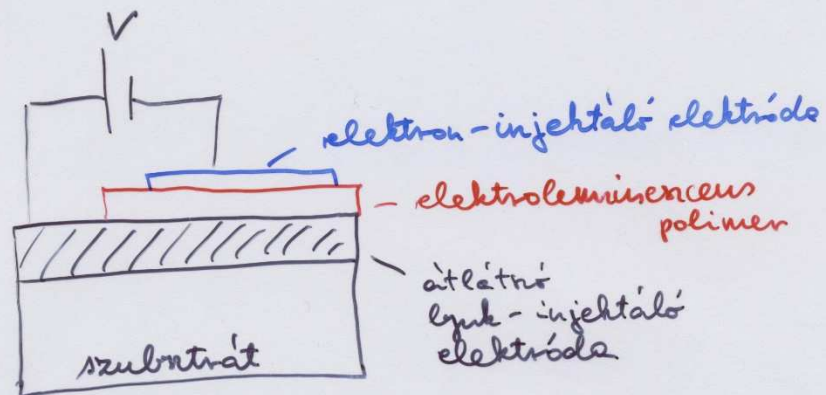 V
elektron-injektáló elektróda
elektrolumineszcens
polimer
átlátszó
lyuk-injektáló
elektróda
szubsztrát